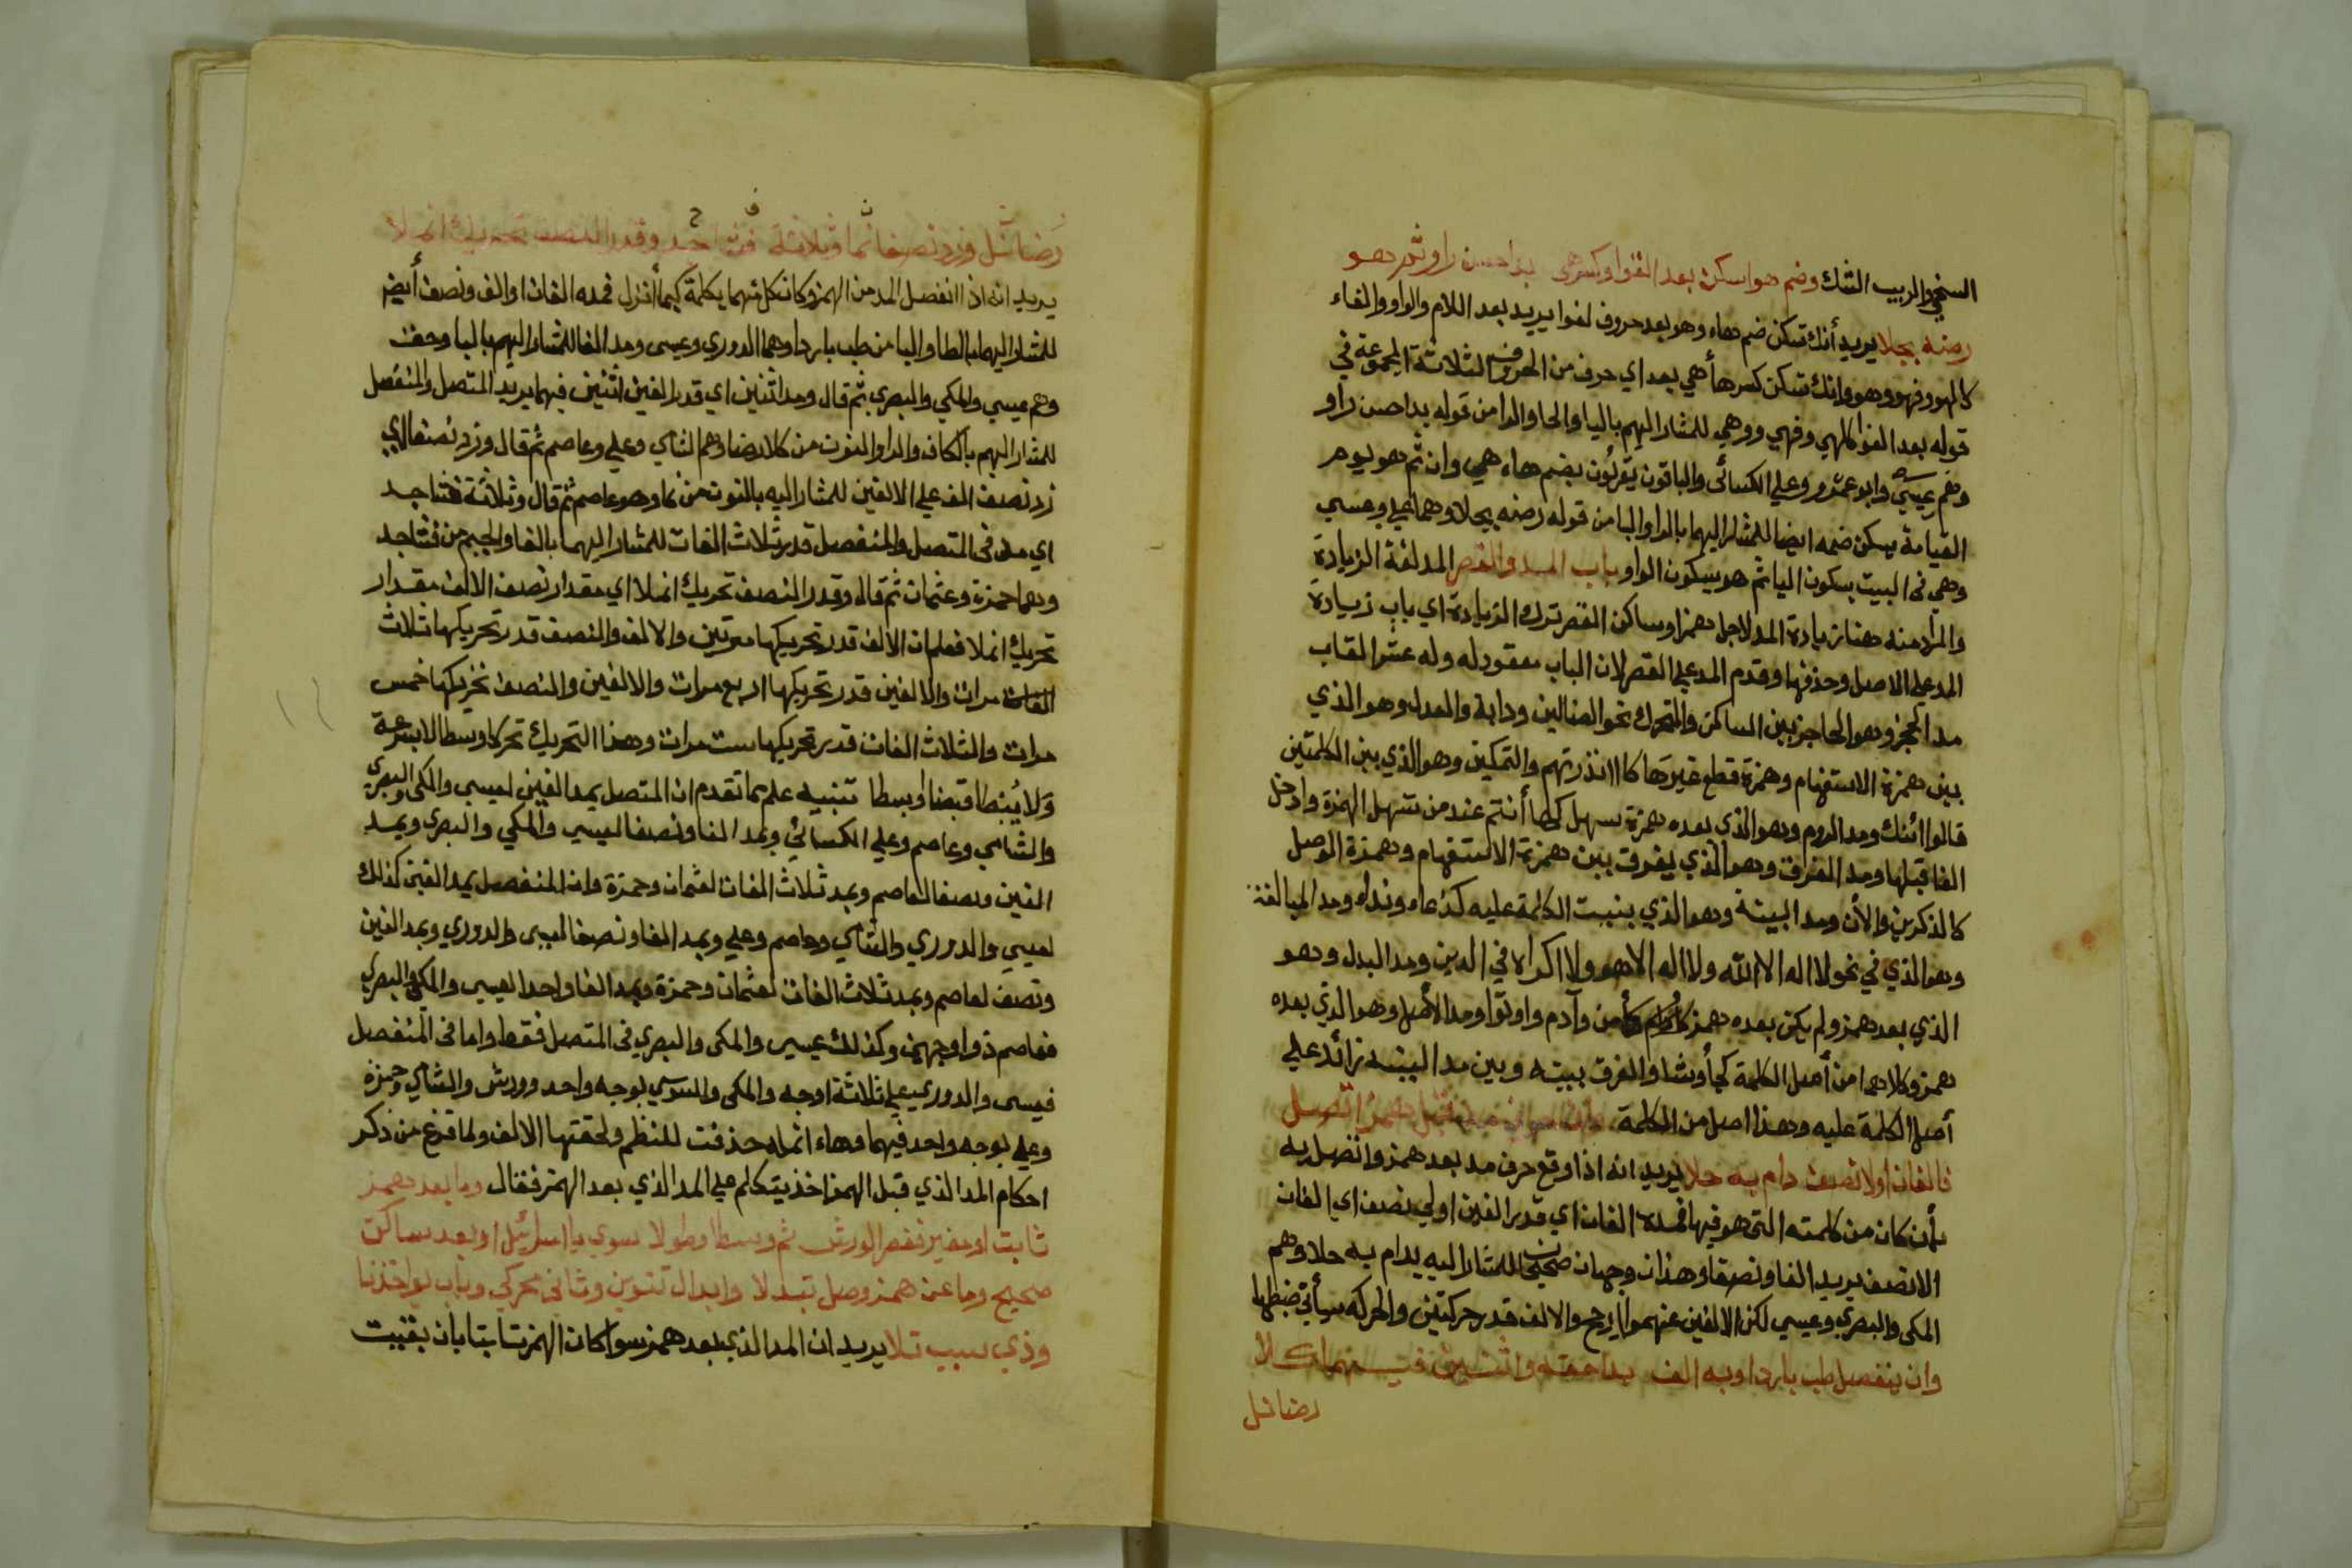 السخي والريب الشك وضم هواسكن بعد الفوا وكسر هي بدا حسن راو وثم هو
رضنه بجلا يريد أنك تسكن ضم هاء وهو بعد حروف لفوا يريد بعد اللام والواو والفاء
كالهو وفهو وهو وانك تسكن كسرها أهي بعد اي حرف من الحروف الثلاثة المجموعة في
قوله بعد الفوا كالهي وفهي ووهي للمشار اليهم بالبا والحا والرا من قوله بدا حسن راو
وهم عيسي وابو عمرو وعلي الكسائى والباقون يقرئون بضم هاء هي وان ثم هو يوم
القيامة يسكن ضمه ايضا للمشار اليهما بالرا والبا من قوله رضنه بجلا وهما علي وعيسي
وهي في البيت بسكون اليا ثم هو بسكون الواو باب المد والقصر المد لغة الزيادة
والمراد منه هنا زيادة المد لاجل همز او ساكن القصر ترك الزيادة اي باب زيادة
المد علي الاصل وحذفها وقدم المد علي القصر لان الباب معقود له وله عشر القاب
مد الحجز وهو الحاجز بين الساكن والمتحرك نحو الضالين ودابة والعدل وهو الذي
بين همزة الاستفهام وهمزة قطع غيرها كاانذرتهم والتمكين وهو الذي بين الكلمتين
قالوا ائنك ومد الروم وهو الذي بعده همزة سهل كها أنتم عند من سهل الهمزة وادخل
الفا قبلها ومد الفرق وهو الذي يفرق بين همزة الاستفهام وهمزة الوصل
كالذكرين والأن ومد البينة وهو الذي بنيت الكلمة عليه كدعاء ونداء ومد المبالغة
وهو الذي في نحو لا اله الا الله ولا اله الا هو ولا اكراه في الدين ومد البدل وهو
الذي بعد همز ولم يكن بعده همز كأمن وآدم واوتوا ومد الأصل وهو الذي بعده
همز وكلاهما من أصل الكلمة كجا وشا والفرق بينه وبين مد البنيه زائد علي
أصل الكلمة عليه وهذا اصل من الكلمة وان حرف مد قبل همز اتصل
فالفان اولا نصف دام به حلا يريد انه اذا وقع حرف مد بعد همز واتصل به
بأن كان من كلمته التي هو فيها فمده الفان اي قدر الفين اولي نصف اي الفان
الا نصف يريد الفا ونصفا وهذان وجهان صحيحان للمشار اليه يدام به حلا وهم
المكى والبصري وعيسي لكن الالفين عنهم ارجح والالف قدر حركتين والحركه سيأتي ضبطها
وان ينفصل طب بارها وبه الف بداحقه واثنين فيهما كلا
رضا نل
رضا نل وزد نصفا نما وثلاثة فتى جد وقدر النصف تحريك انملا
يريد انه اذا انفصل المد من الهمز وكان كل منهما بكلمة كبما أنزل فمده الفان او الف ونصف أيضا
للمشار اليهما بالطا والبا من طب بارها وهما الدوري وعيسى ومد الفا للمشار اليهم بالبا وحق
وهم عيسي والمكي والبصري ثم قال ومد اثنين اي قدر الفين اثنين فيهما يريد المتصل والمنفصل
للمشار اليهم بالكاف والرا والنون من كلا رضا وهم الشامي وعلي وعاصم ثم قال وزد نصفا اي
زد نصف الف علي الالفين للمشار اليه بالنون من نما وهو عاصم ثم قال وثلاثة فتى جد
اي مد في المتصل والمنفصل قدر ثلاث الفات للمشار اليهما بالفا والجيم من فتى جد
وهما حمزة وعثمان ثم قال وقدر النصف تحريك انملا اي مقدار نصف الالف مقدار
تحريك انملا فعلم ان الالف قدر تحريكها مرتين والالف والنصف قدر تحريكها ثلاث
مرات والالفين قدر تحريكها اربع مرات والالفين والنصف تحريكها خمس
مرات والثلاث الفات قدر تحريكها ست مرات وهذا التحريك تحركا وسطا لا بسرعة
ولا يبطا قبضا وبسطا تنبيه علم مما تقدم ان المتصل يمد الفين لعيسي والمكي والبصري
والشامي وعاصم وعلي الكسائي ويمد الفا ونصفا لعيسي والمكي والبصري ويمد
الفين ونصفا لعاصم ويمد ثلاث الفات لعثمان وحمزة وان المنفصل يمد الفين كذلك
لعيسي والدوري والشامي وعاصم وعلي ويمد الفا ونصفا لعيسى والدوري ويمد الفين
ونصف لعاصم ويمد ثلاث الفات لعثمان وحمزة ويمد الفا واحدا لعيسي والمكي والبصري
فعاصم ذو اوجهين وكذلك عيسي والمكى والبصري في المتصل فقط واما في المنفصل
فعيسى والدوري علي ثلاثة اوجه والمكى والسوسي بوجه واحد وورش والشامي وحمزه
وعلي بوجه واحد فيهما وهاء انمله حذفت للنظم ولحقتها الالف ولما فرغ من ذكر
احكام المد الذي قبل الهمز اخذ يتكلم علي المد الذي بعد الهمز فقال وما بعد همز
ثابت او مغير فقصر لورش ثم وسطا وطولا سوي يا اسرائيل او بعد ساكن
صحيح وما عن همز وصل تبدلا وابدال تنوين وثاني محركي وباب يواخذنا
وذي سبب تلا يريد ان المد الذي بعد همز سوا كان الهمز ثابتا بان بقيت